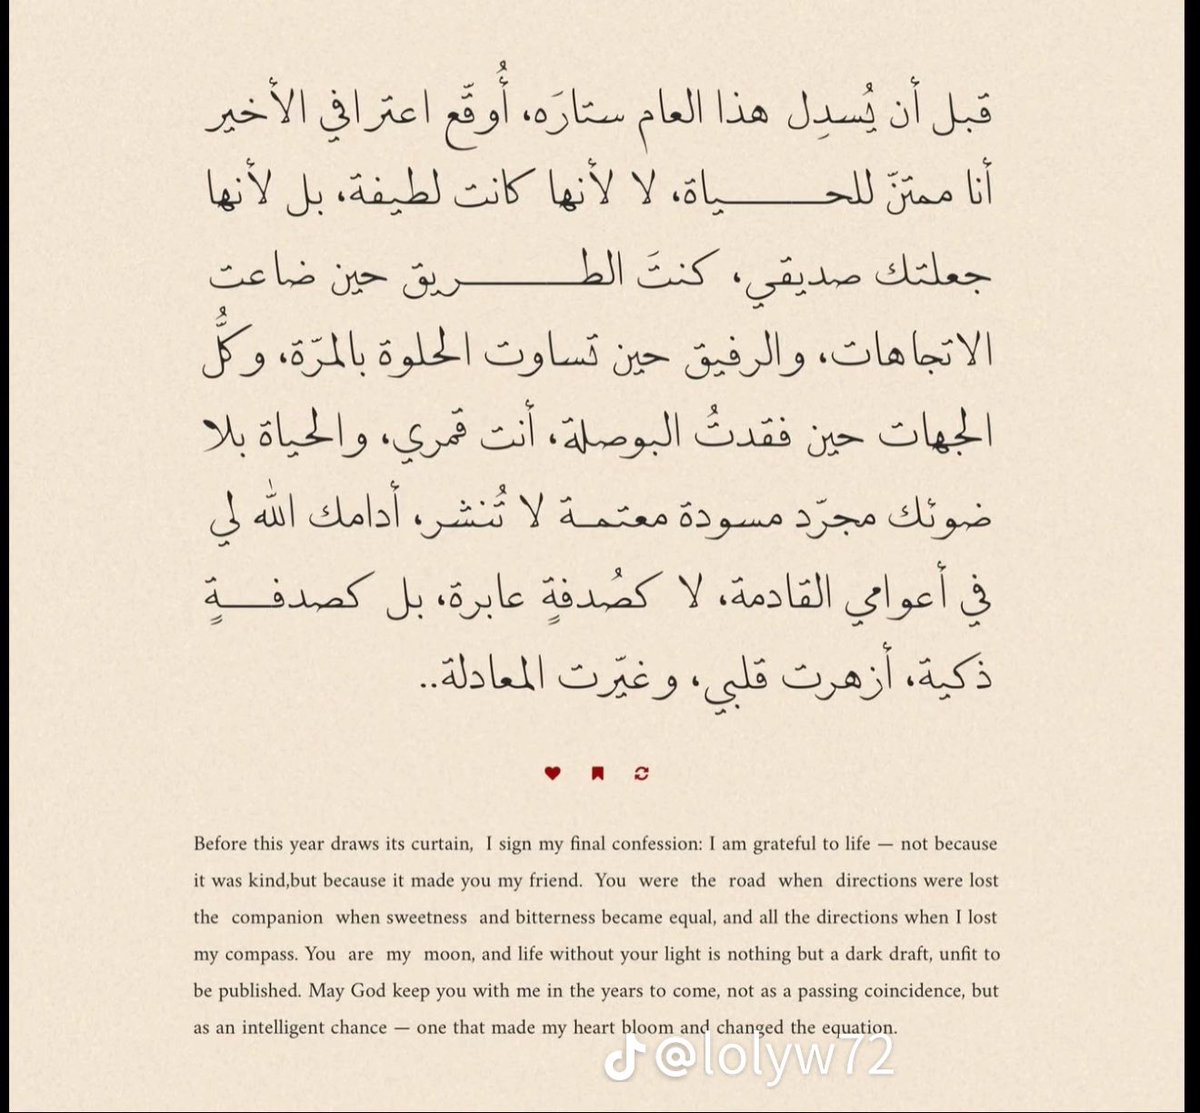 قبل أن يُسدِل هذا العام ستارَه، أُوقّع اعترافي الأخير
أنا ممتنّ للحـــــياة، لا لأنها كانت لطيفة، بل لأنها
جعلتك صديقي، كنتَ الطـــــريق حين ضاعت
الاتجاهات، والرفيق حين تساوت الحلوة بالمرّة، وكلُّ
الجهات حين فقدتُ البوصلة، أنت قمري، والحياة بلا
ضوئك مجرّد مسودة معتمـة لا تُنشر، أدامك الله لي
في أعوامي القادمة، لا كصُدفةٍ عابرة، بل كصدفـــةٍ
ذكية، أزهرت قلبي، وغيّرت المعادلة..
Before this year draws its curtain, I sign my final confession: I am grateful to life — not because
it was kind,but because it made you my friend. You were the road when directions were lost
the companion when sweetness and bitterness became equal, and all the directions when I lost
my compass. You are my moon, and life without your light is nothing but a dark draft, unfit to
be published. May God keep you with me in the years to come, not as a passing coincidence, but
as an intelligent chance — one that made my heart bloom and changed the equation.
@lolyw72